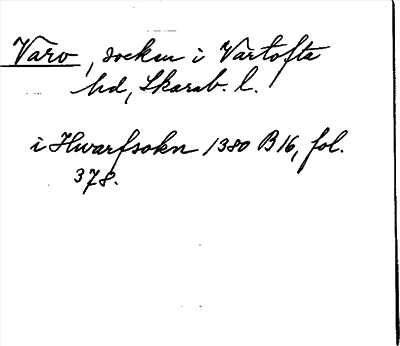 Varv, socken i Vartofta
hd, Skarab. l.
i Hwarfsokn 1380 B16, fol.
378.